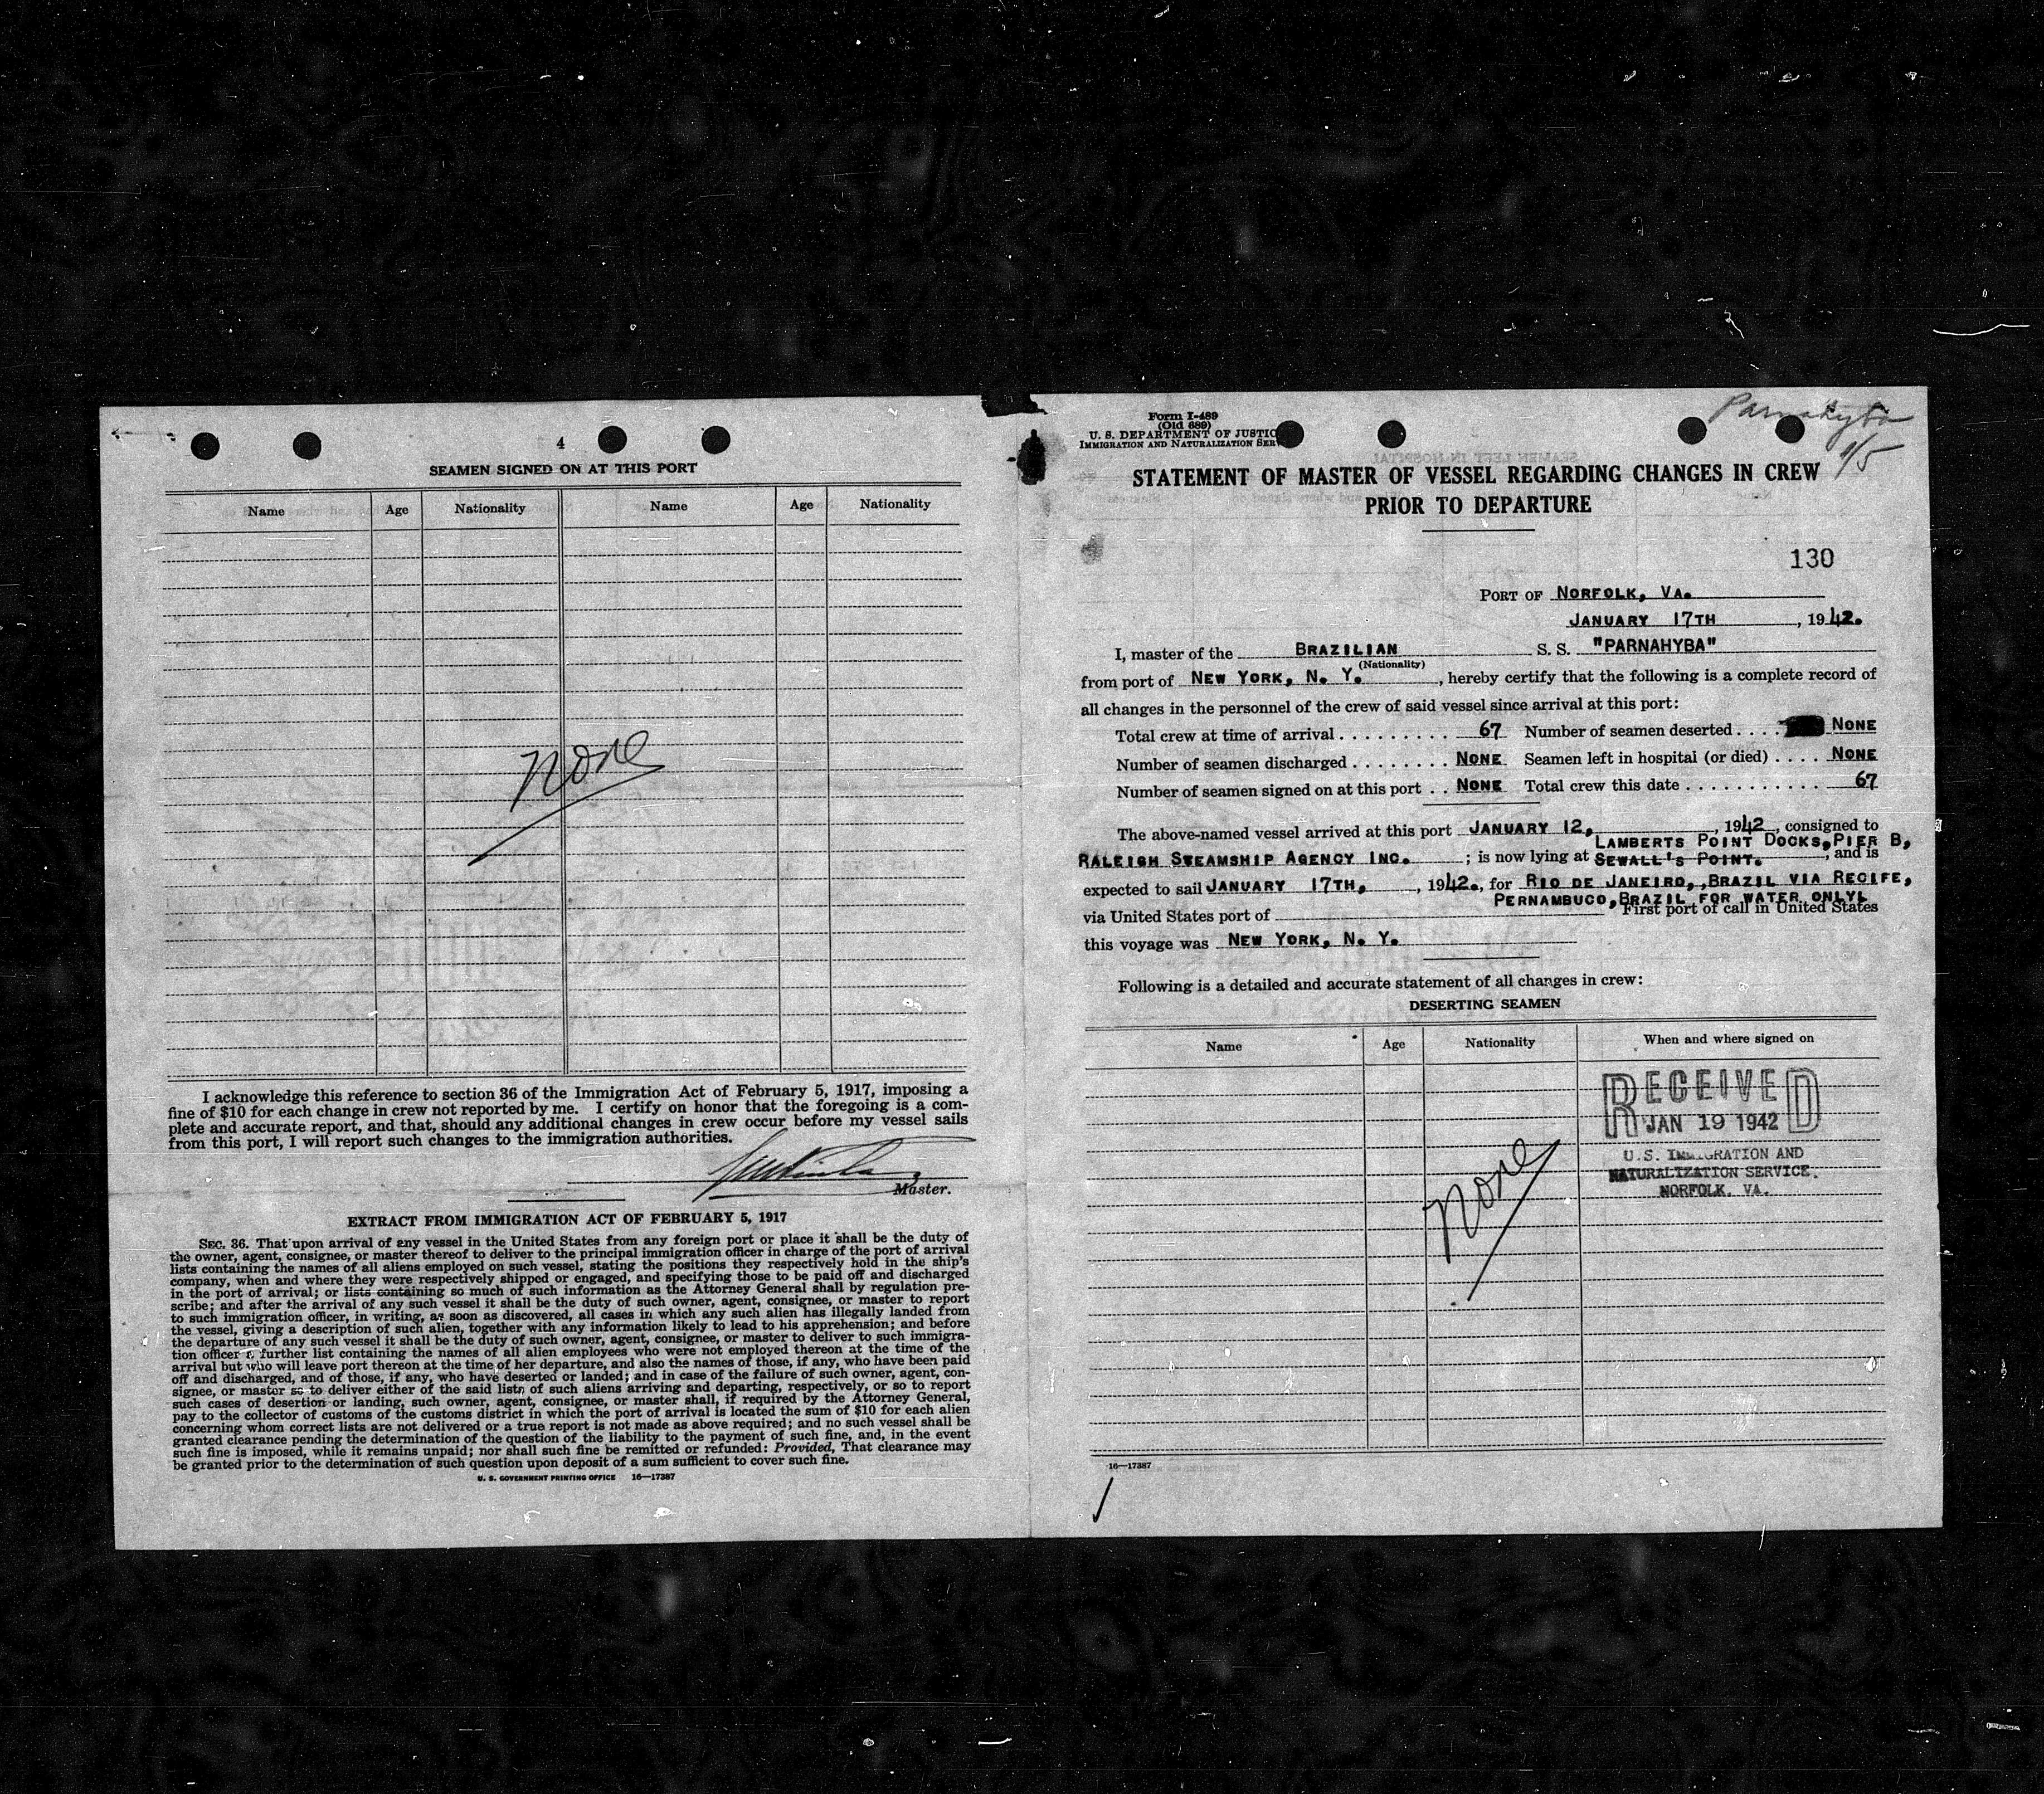 4
SEAMEN SIGNED ON AT THIS PORT
Name Age Nationality Name Age Nationality
None
I acknowledge this reference to section 36 of the Immigration Act of February 5, 1917, imposing a
fine of $10 for each change in crew not reported by me. I certify on honor that the foregoing is a com-
plete and accurate report, and that, should any additional changes in crew occur before my vessel sails
from this port, I will report such changes to the immigration authorities.
Master.
EXTRACT FROM IMMIGRATION ACT OF FEBRUARY 5, 1917
SEC. 36. That upon arrival of any vessel in the United States from any foreign port or place it shall be the duty of
the owner, agent, consignee, or master thereof to deliver to the principal immigration officer in charge of the port of arrival
lists containing the names of all aliens employed on such vessel, stating the positions they respectively hold in the ship's
company, when and where they were respectively shipped or engaged, and specifying those to be paid off and discharged
in the port of arrival; or lists containing so much of such information as the Attorney General shall by regulation pre-
scribe; and after the arrival of any such vessel it shall be the duty of such owner, agent, consignee, or master to report
to such immigration officer, in writing, as soon as discovered, all cases in which any such alien has illegally landed from
the vessel, giving a description of such alien, together with any information likely to lead to his apprehension; and before
the departure of any such vessel it shall be the duty of such owner, agent, consignee, or master to deliver to such immigra-
tion officer a further list containing the names of all alien employees who were not employed thereon at the time of the
arrival but who will leave port thereon at the time of her departure, and also the names of those, if any, who have been paid
off and discharged, and of those, if any, who have deserted or landed; and in case of the failure of such owner, agent, con-
signee, or master so to deliver either of the said lists of such aliens arriving and departing, respectively, or so to report
such cases of desertion or landing, such owner, agent, consignee, or master shall, if required by the Attorney General,
pay to the collector of customs of the customs district in which the port of arrival is located the sum of $10 for each alien
concerning whom correct lists are not delivered or a true report is not made as above required; and no such vessel shall be
granted clearance pending the determination of the question of the liability to the payment of such fine, and, in the event
such fine is imposed, while it remains unpaid; nor shall such fine be remitted or refunded: Provided, That clearance may
be granted prior to the determination of such question upon deposit of a sum sufficient to cover such fine.
U. S. GOVERNMENT PRINTING OFFICE 16—17387
Form I-489
(Old 689)
U. S. DEPARTMENT OF JUSTIC
IMMIGRATION AND NATURALIZATION SER
Parnahyba
1/5
STATEMENT OF MASTER OF VESSEL REGARDING CHANGES IN CREW
PRIOR TO DEPARTURE
130
PORT OF NORFOLK, VA.
JANUARY 17TH, 1942.
I, master of the BRAZILIAN S. S. "PARNAHYBA"
(Nationality)
from port of NEW YORK, N. Y., hereby certify that the following is a complete record of
all changes in the personnel of the crew of said vessel since arrival at this port:
Total crew at time of arrival . . . . . . . . . 67 Number of seamen deserted . . . . NONE
Number of seamen discharged . . . . . . . . NONE Seamen left in hospital (or died) . . . . NONE
Number of seamen signed on at this port . . NONE Total crew this date . . . . . . . . . . . 67
The above-named vessel arrived at this port JANUARY 12, 1942, consigned to
LAMBERTS POINT DOCKS, PIER B,
RALEIGH STEAMSHIP AGENCY INC. ; is now lying at SEWALL'S POINT. , and is
expected to sail JANUARY 17TH, , 1942., for RIO DE JANEIRO,,BRAZIL VIA RECIFE,
PERNAMBUCO,BRAZIL FOR WATER ONLYL
via United States port of First port of call in United States
this voyage was NEW YORK, N. Y.
Following is a detailed and accurate statement of all changes in crew:
DESERTING SEAMEN
Name Age Nationality When and where signed on
RECEIVED
JAN 19 1942
U.S. IMMIGRATION AND
NATURALIZATION SERVICE.
NORFOLK. VA.
None
16—17387